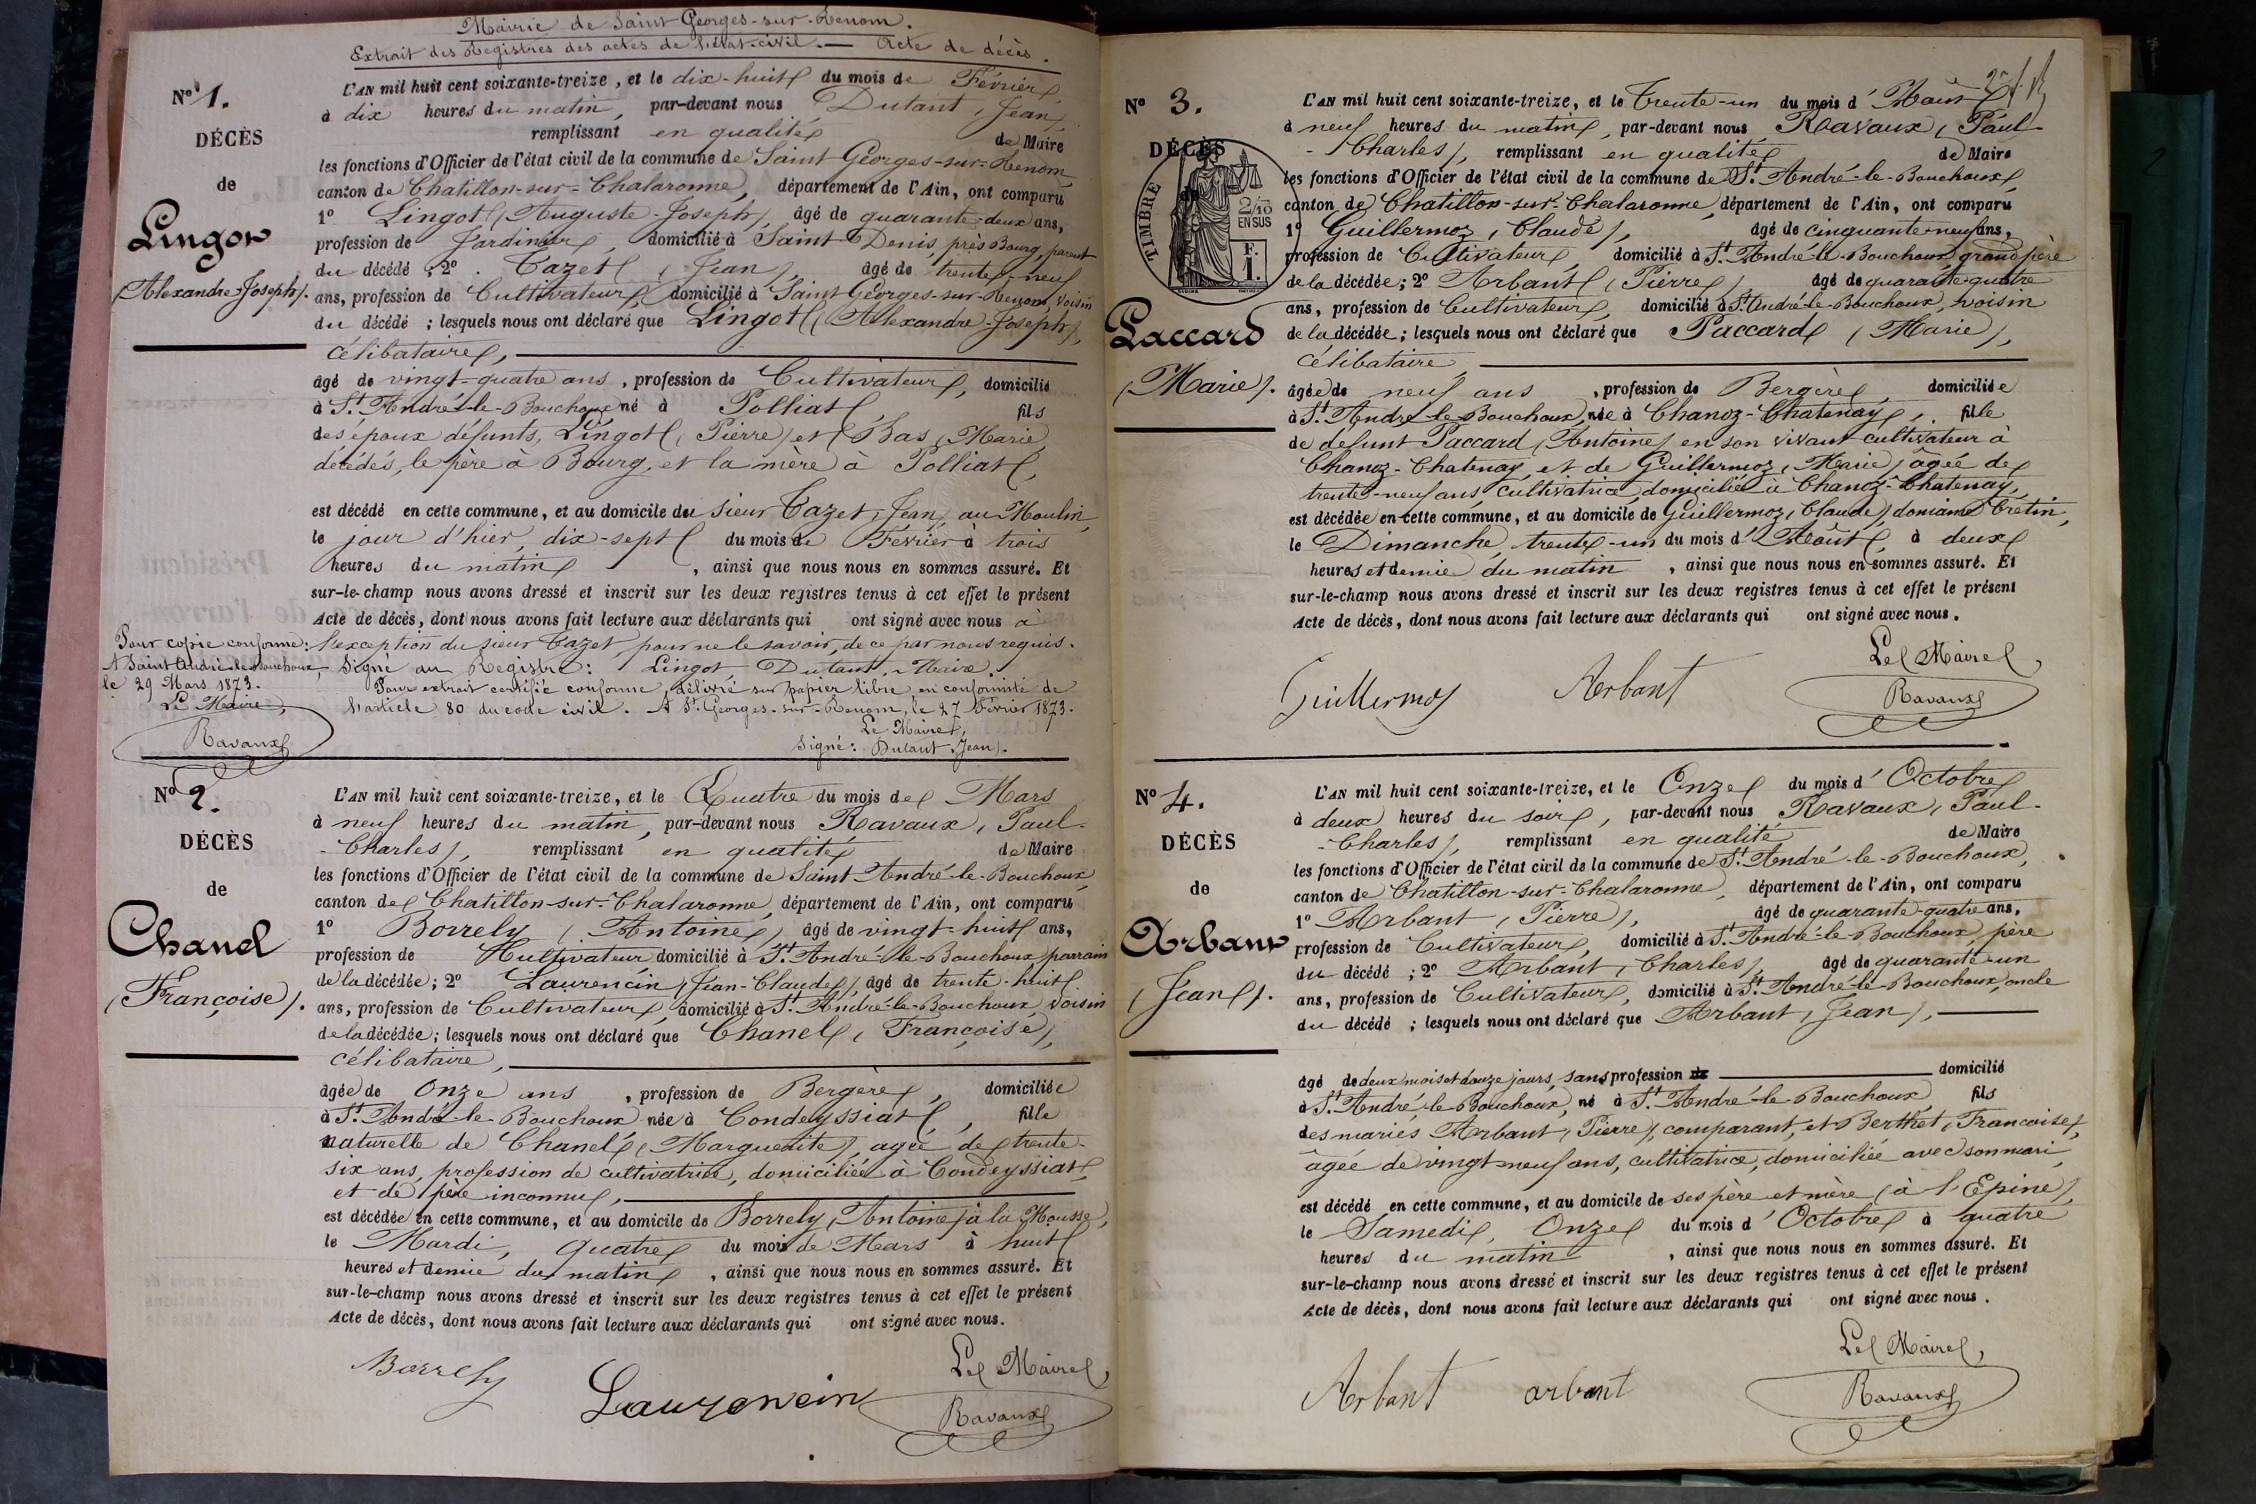 Mairie de Saint-Georges-sur-Renom.
Extrait des Registres des actes de l'état-civil. — Acte de décès.
N° 1.
DÉCÈS
de
Lingot
(Alexandre-Joseph).
L'AN mil huit cent soixante-treize, et le dix-huit du mois de Février
à dix heures du matin, par-devant nous Dutant, (Jean),
remplissant en qualité de Maire
les fonctions d'Officier de l'état civil de la commune de Saint-Georges-sur-Renom,
canton de Chatillon-sur-Chalaronne, département de l'Ain, ont comparu
1° Lingot (Auguste-Joseph), âgé de quarante-deux ans,
profession de Jardinier, domicilié à Saint-Denis, près Bourg, parent
du décédé ; 2° Cazet (Jean), âgé de trente-neuf
ans, profession de Cultivateur, domicilié à Saint-Georges-sur-Renom, voisin
du décédé ; lesquels nous ont déclaré que Lingot (Alexandre-Joseph),
célibataire,
âgé de vingt-quatre ans, profession de Cultivateur, domicilié
à St. André-le-Bouchoux né à Polliat, fils
des époux défunts, Lingot (Pierre) et Bas (Marie)
décédés, le père à Bourg, et la mère à Polliat,
est décédé en cette commune, et au domicile du sieur Cazet, Jean, au Moulin,
le jour d'hier, dix-sept du mois de Février à trois
heures du matin, ainsi que nous nous en sommes assuré. Et
sur-le-champ nous avons dressé et inscrit sur les deux registres tenus à cet effet le présent
Acte de décès, dont nous avons fait lecture aux déclarants qui ont signé avec nous à
l'exception du sieur Cazet, pour ne le savoir, de ce par nous requis.
Signé au Registre : Lingot, Dutant, Maire.
Pour extrait certifié conforme, délivré sur papier libre, en conformité de
l'article 80 du code civil. A St. Georges-sur-Renom, le 27 Février 1873.
Le Maire,
Signé : Dutant (Jean).
Pour copie conforme :
A Saint André-le-Bouchoux,
le 29 Mars 1873.
Le Maire,
Ravaux
N° 2.
DÉCÈS
de
Chanel
(Françoise).
L'AN mil huit cent soixante-treize, et le Quatre du mois de Mars
à neuf heures du matin, par-devant nous Ravaux, (Paul-
-Charles), remplissant en qualité de Maire
les fonctions d'Officier de l'état civil de la commune de Saint-André-le-Bouchoux
canton de Chatillon-sur-Chalaronne, département de l'Ain, ont comparu
1° Borrely (Antoine), âgé de vingt-huit ans,
profession de Cultivateur domicilié à St. André-le-Bouchoux, parrain
de la décédée ; 2° Laurencin (Jean-Claude), âgé de trente-huit
ans, profession de Cultivateur, domicilié à St. André-le-Bouchoux, voisin
de la décédée ; lesquels nous ont déclaré que Chanel (Françoise),
célibataire,
âgée de Onze ans, profession de Bergère, domiciliée
à St. André-le-Bouchoux née à Condeyssiat, fille
naturelle de Chanel (Marguerite), agée de trente-
six ans, profession de cultivatrice, domiciliée à Condeyssiat,
et de père inconnu,
est décédée en cette commune, et au domicile de Borrely (Antoine) à la Mousse,
le Mardi, quatre du mois de Mars à huit
heures et demie du matin, ainsi que nous nous en sommes assuré. Et
sur-le-champ nous avons dressé et inscrit sur les deux registres tenus à cet effet le présent
Acte de décès, dont nous avons fait lecture aux déclarants qui ont signé avec nous.
Borrely Laurencin
Le Maire,
Ravaux
N° 3.
DÉCÈS
de
TIMBRE
2/10
EN SUS
F.
1.
Paccard
(Marie).
L'AN mil huit cent soixante-treize, et le Trente-un du mois d'Août
à neuf heures du matin, par-devant nous Ravaux, (Paul-
-Charles), remplissant en qualité de Maire
les fonctions d'Officier de l'état civil de la commune de St. André-le-Bouchoux,
canton de Chatillon-sur-Chalaronne, département de l'Ain, ont comparu
1° Guillermoz, (Claude), âgé de cinquante-neuf ans,
profession de Cultivateur, domicilié à St. André-le-Bouchoux, grand père
de la décédée ; 2° Arbant (Pierre), âgé de quarante-quatre
ans, profession de Cultivateur, domicilié à St. André-le-Bouchoux, voisin
de la décédée ; lesquels nous ont déclaré que Paccard (Marie),
célibataire,
âgée de neuf ans, profession de Bergère, domiciliée
à St. André-le-Bouchoux, née à Chanoz-Chatenay, fille
de defunt Paccard (Antoine) en son vivant cultivateur à
Chanoz-Chatenay, et de Guillermoz (Marie), âgée de
trente-neuf ans cultivatrice, domiciliée à Chanoz-Chatenay,
est décédée en cette commune, et au domicile de Guillermoz (Claude), domaine Crétin,
le Dimanche, trente-un du mois d'Août, à deux
heures et demie du matin, ainsi que nous nous en sommes assuré. Et
sur-le-champ nous avons dressé et inscrit sur les deux registres tenus à cet effet le présent
Acte de décès, dont nous avons fait lecture aux déclarants qui ont signé avec nous.
Guillermoz Arbant
Le Maire,
Ravaux
N° 4.
DÉCÈS
de
Arbant
(Jean).
L'AN mil huit cent soixante-treize, et le Onze du mois d'Octobre
à deux heures du soir, par-devant nous Ravaux, (Paul-
-Charles), remplissant en qualité de Maire
les fonctions d'Officier de l'état civil de la commune de St. André-le-Bouchoux,
canton de Chatillon-sur-Chalaronne, département de l'Ain, ont comparu
1° Arbant (Pierre), âgé de quarante-quatre ans,
profession de Cultivateur, domicilié à St. André-le-Bouchoux, père
du décédé ; 2° Arbant (Charles), âgé de quarante-un
ans, profession de Cultivateur, domicilié à St. André-le-Bouchoux, oncle
du décédé ; lesquels nous ont déclaré que Arbant, (Jean),
âgé de deux mois et douze jours, sans profession domicilié
à St. André-le-Bouchoux, né à St. André-le-Bouchoux, fils
des mariés Arbant (Pierre), comparant, et Berthet (Françoise),
âgée de vingt-neuf ans, cultivatrice, domiciliée avec son mari,
est décédé en cette commune, et au domicile de ses père et mère (à l'Epine),
le Samedi, Onze du mois d'Octobre à quatre
heures du matin, ainsi que nous nous en sommes assuré. Et
sur-le-champ nous avons dressé et inscrit sur les deux registres tenus à cet effet le présent
Acte de décès, dont nous avons fait lecture aux déclarants qui ont signé avec nous.
Arbant arbant
Le Maire,
Ravaux